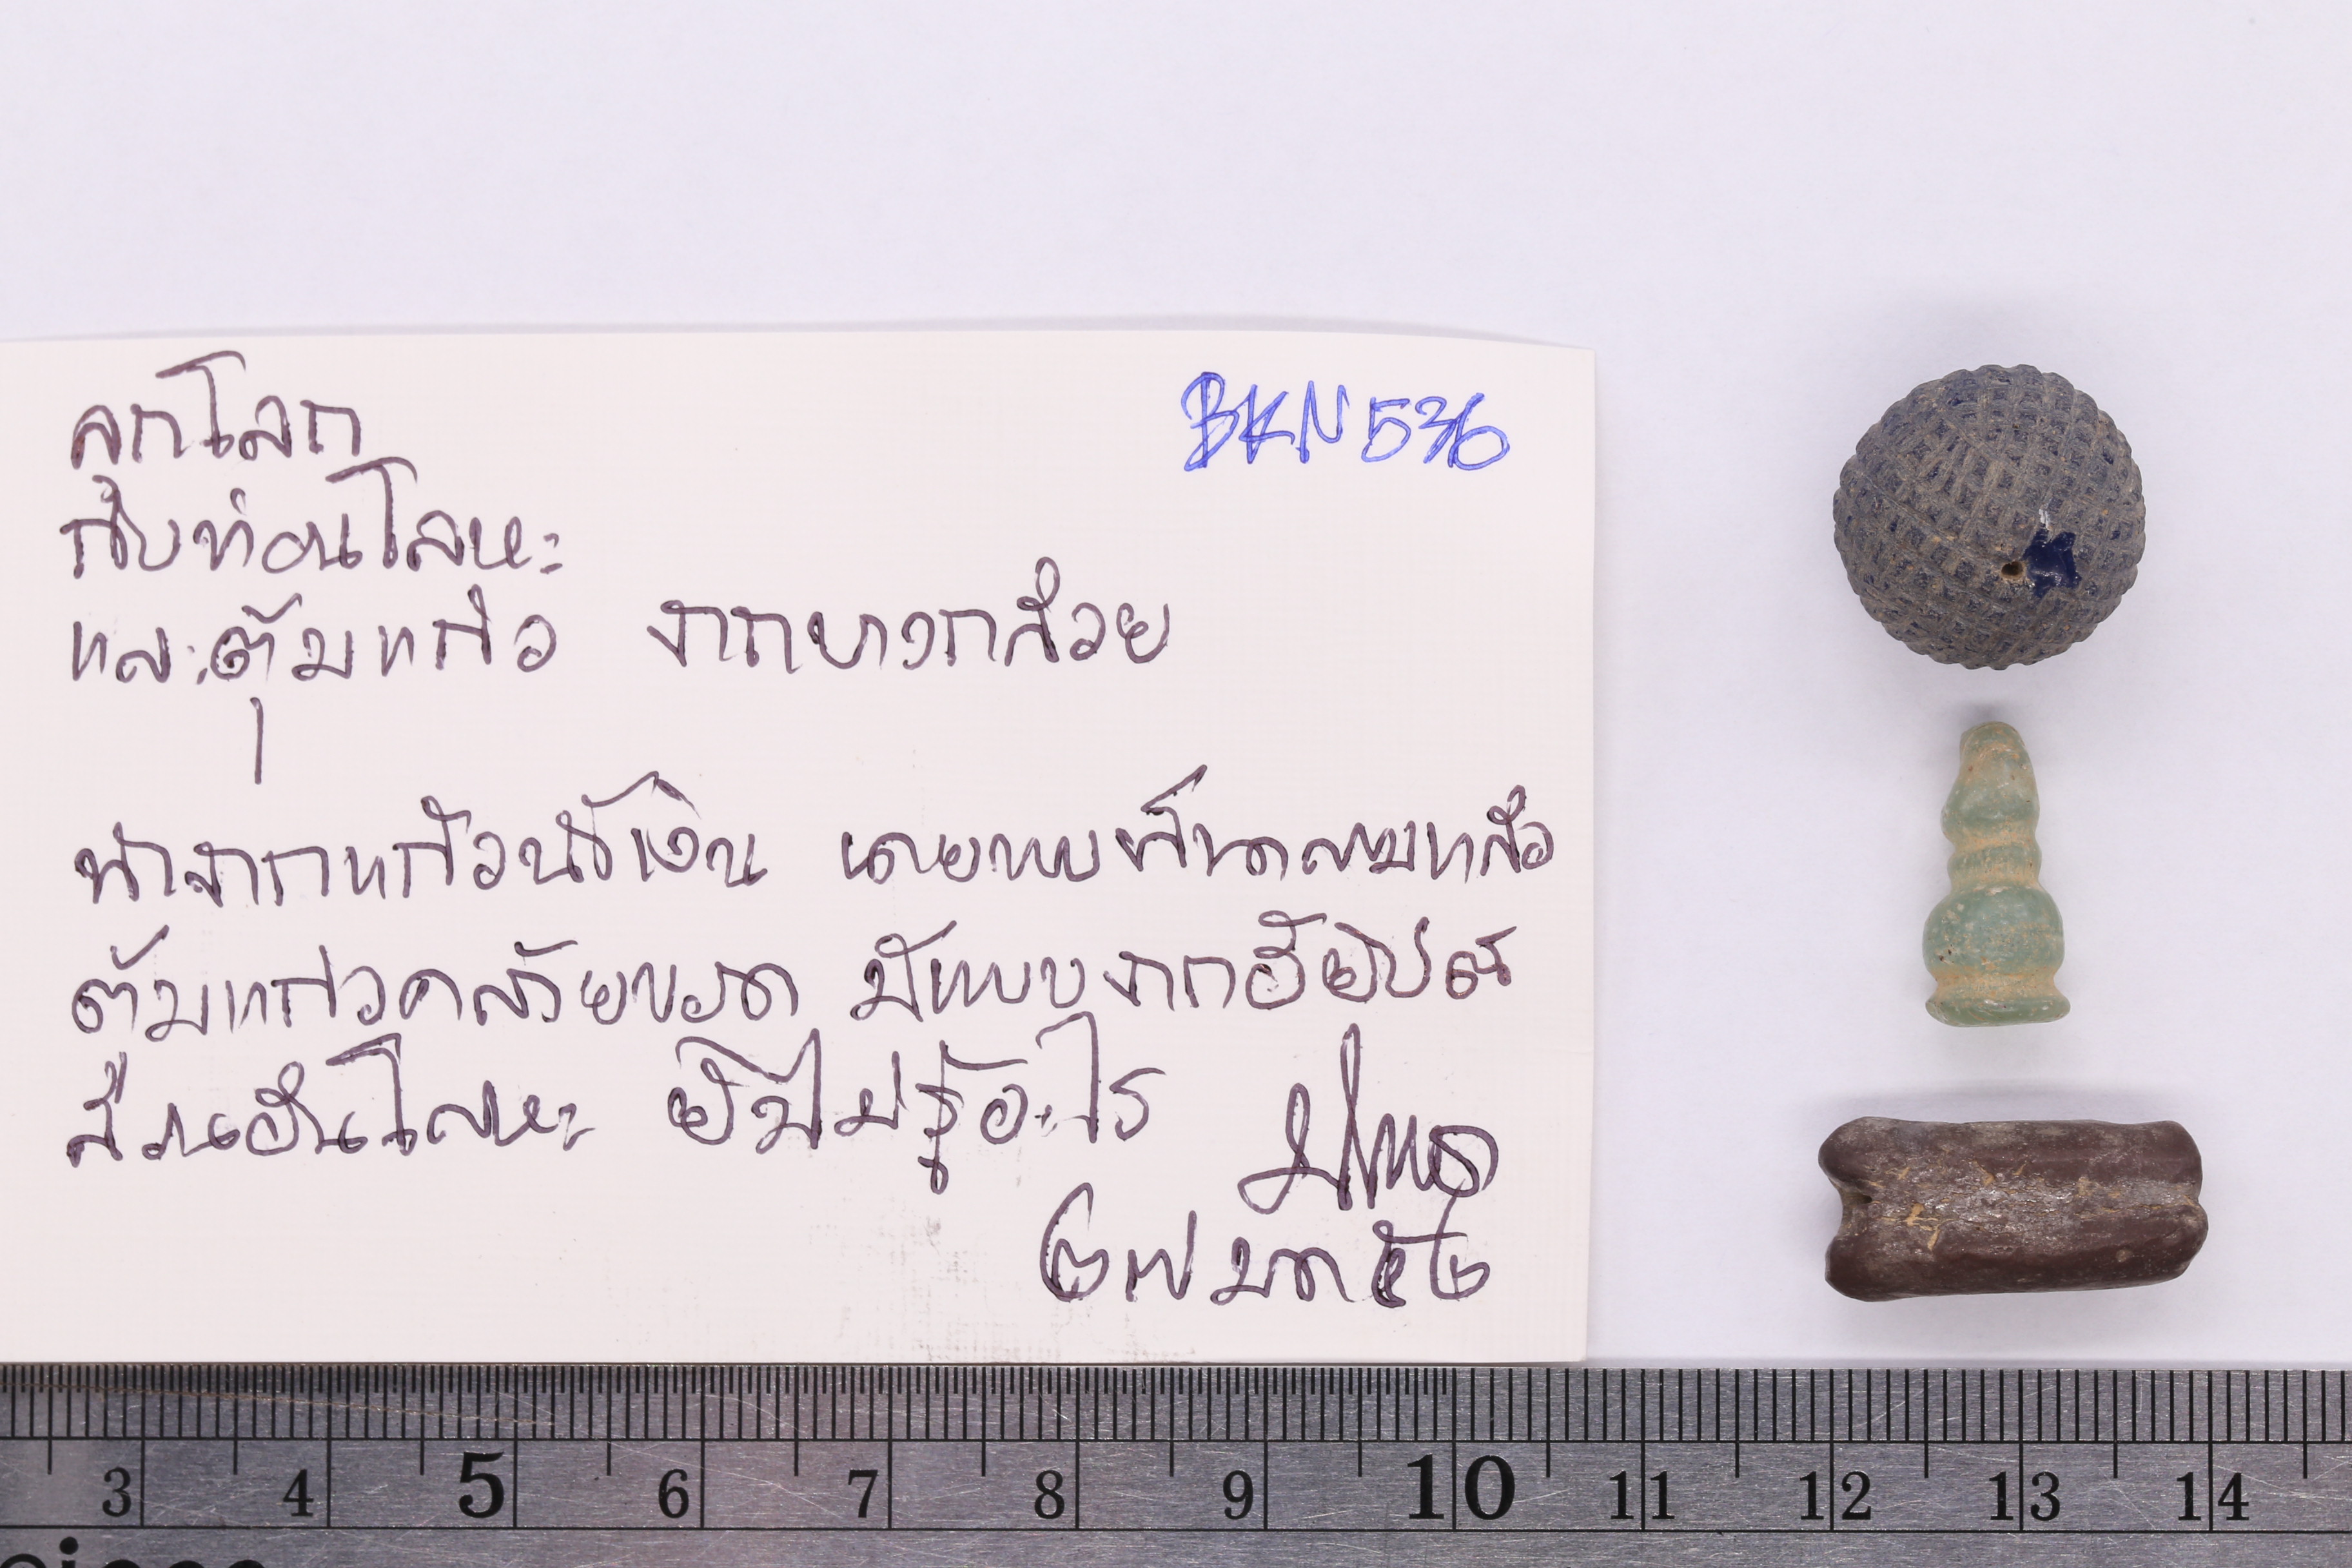 BKN536
ลูกโลก
กับท่อนโลหะ
และตุ้มแก้ว จากบางกล้วย
ทำจากแก้วน้ำเงิน เคยพบที่คลองแก้ว
ตุ้มแก้วคล้ายขวด มีแบบจากอียิปต์
ส่วนอันโลหะ ยังไม่รู้อะไร
๒๗ มค ๕๒
3 4 5 6 7 8 9 10 11 12 13 14